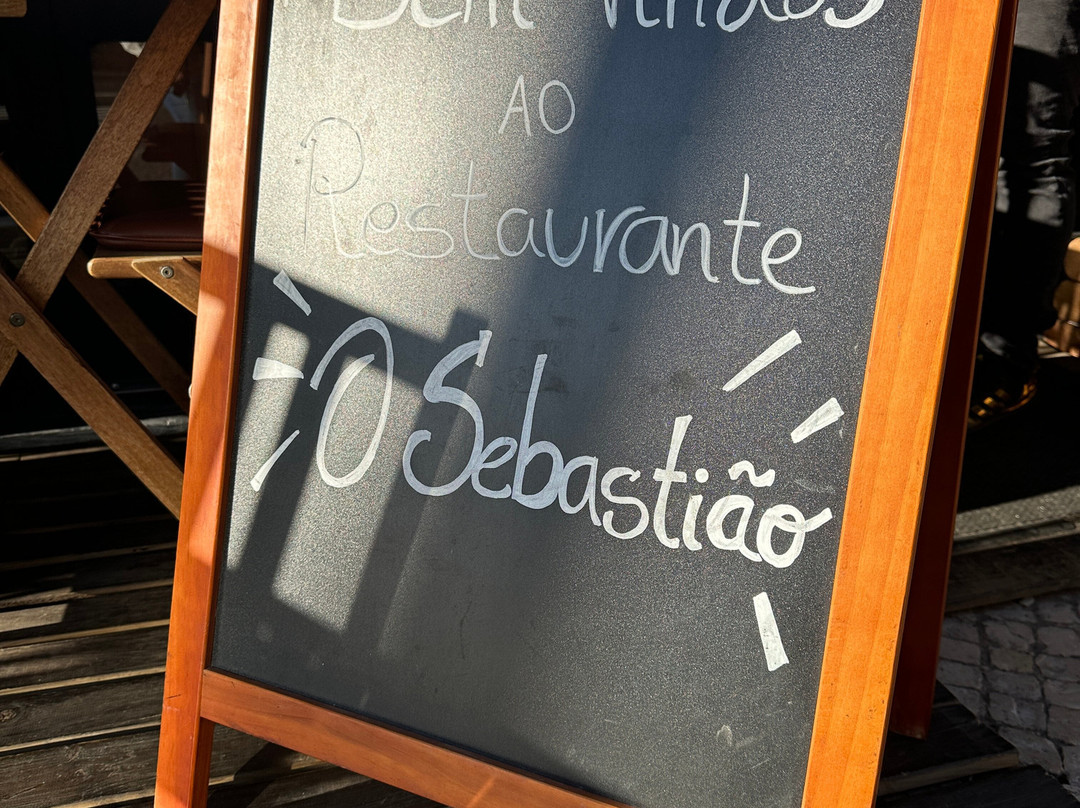 Bem Vindos
AO
Restaurante
O Sebastião